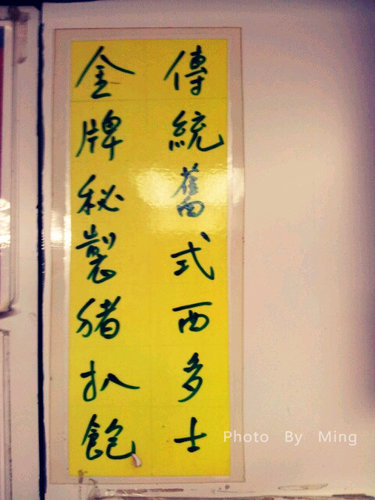 傳統舊式西多士
金牌秘製豬扒飽
Photo By Ming